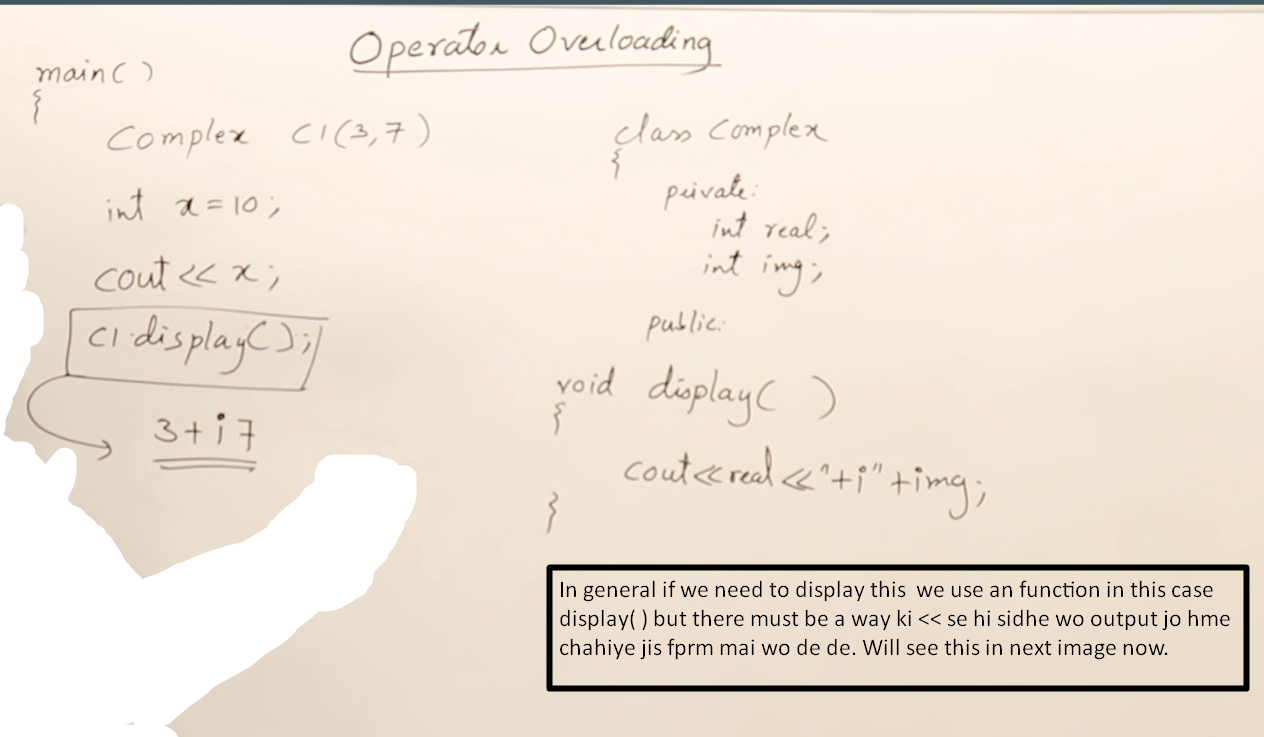 Operator Overloading
main()
{
Complex C1(3,7)
int x=10;
cout<<x;
C1.display();
3+i7
class Complex
{
private:
int real;
int img;
public:
void display( )
{
cout<<real<<"+i"+img;
}
In general if we need to display this we use an function in this case
display( ) but there must be a way ki << se hi sidhe wo output jo hme
chahiye jis fprm mai wo de de. Will see this in next image now.